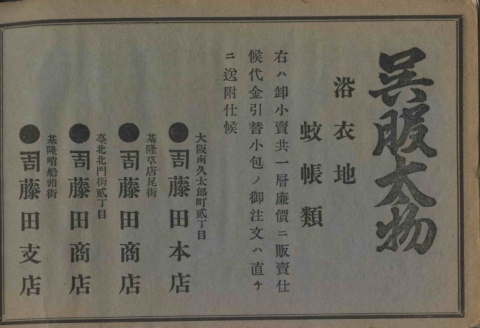 呉服太物
浴衣地
蚊帳類
右ハ卸小賣共一層廉價ニ販賣仕
候代金引替小包ノ御注文ハ直ケ
ニ送附仕候
大阪南久太郎町貳丁目
吉藤田本店
基隆草店尾街
吉藤田商店
臺北北門街貳丁目
吉藤田商店
基隆哨船頭街
吉藤田支店